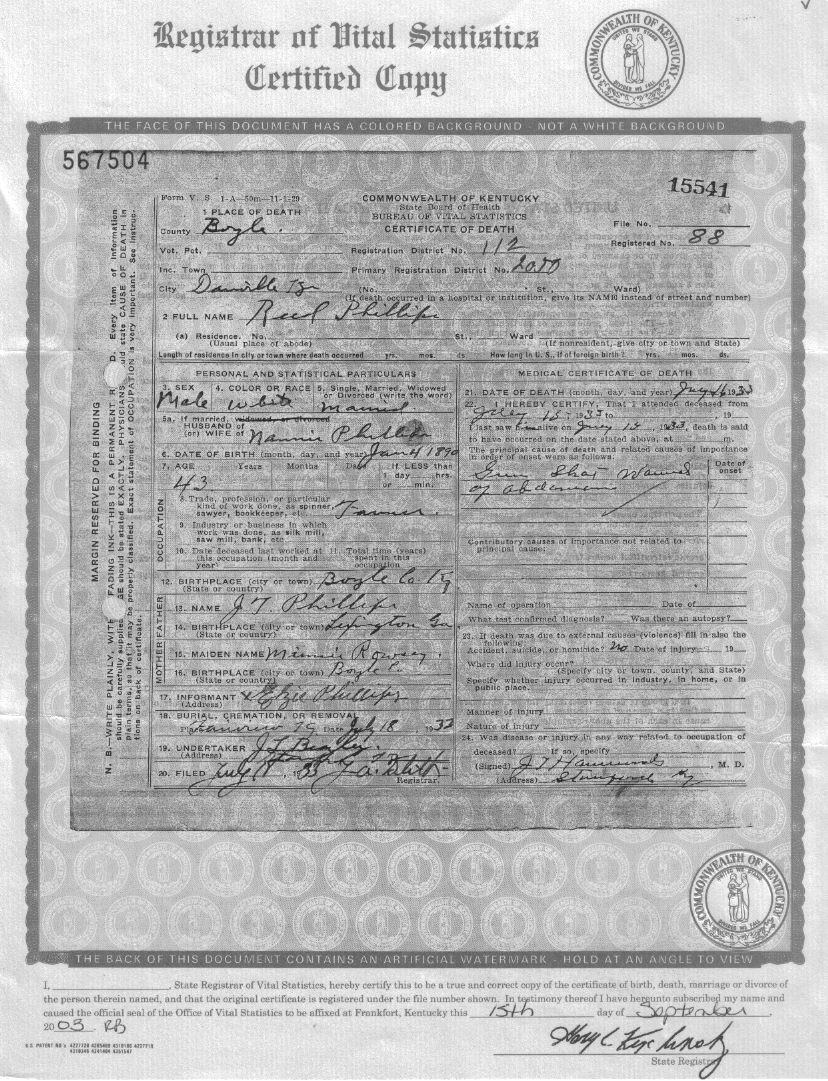 Registrar of Vital Statistics
Certified Copy
COMMONWEALTH OF KENTUCKY
UNITED WE STAND
DIVIDED WE FALL
THE FACE OF THIS DOCUMENT HAS A COLORED BACKGROUND - NOT A WHITE BACKGROUND
567504
15541
Form V. S 1-A—50m—11-1-29
COMMONWEALTH OF KENTUCKY
State Board of Health
BUREAU OF VITAL STATISTICS
CERTIFICATE OF DEATH
1 PLACE OF DEATH
County Boyle.
File No.
Registered No. 88
Vot. Pct.
Registration District No. 112
Inc. Town
Primary Registration District No.
City Danville Ky
(No. St., Ward)
(If death occurred in a hospital or institution, give its NAME instead of street and number)
2 FULL NAME Reed Phillips
(a) Residence. No. St., Ward
(Usual place of abode) (If nonresident, give city or town and State)
Length of residence in city or town where death occurred yrs. mos. ds. How long in U. S., if of foreign birth? yrs. mos. ds.
PERSONAL AND STATISTICAL PARTICULARS
3. SEX 4. COLOR OR RACE 5. Single, Married, Widowed
or Divorced (write the word)
Male White Married
5a. If married, widowed, or divorced
HUSBAND of
(or) WIFE of Nannie Phillips
6. DATE OF BIRTH (month, day, and year) Jan 4 1890
7. AGE Years Months Days If LESS than
day hrs.
or min.
43
8. Trade, profession, or particular
kind of work done, as spinner,
sawyer, bookkeeper, etc. Farmer.
9. Industry or business in which
work was done, as silk mill,
saw mill, bank, etc
10. Date deceased last worked at 11. Total time (years)
this occupation (month and spent in this
year) occupation
OCCUPATION
12. BIRTHPLACE (city or town) Boyle Co Ky
(State or country)
FATHER
13. NAME J. T. Phillips
14. BIRTHPLACE (city or town)
(State or country)
MOTHER
15. MAIDEN NAME Minnie
16. BIRTHPLACE (city or town) Boyle Co.
(State or country)
17. INFORMANT Phillips
(Address)
18. BURIAL, CREMATION, OR REMOVAL
Place Ky Date July 18 1933
19. UNDERTAKER
(Address)
20. FILED July 18, 33
Registrar.
MEDICAL CERTIFICATE OF DEATH
21. DATE OF DEATH (month, day, and year) July 16 1933
22. I HEREBY CERTIFY, That I attended deceased from
July 15 - 1933 to , 19
I last saw him alive on , 1933, death is said
to have occurred on the date stated above, at m.
The principal cause of death and related causes of importance
in order of onset were as follows:
Date of
onset
Gun Shot Wound
of abdomen
Contributory causes of importance not related to
principal cause:
Name of operation Date of
What test confirmed diagnosis? Was there an autopsy?
23. If death was due to external causes (violence) fill in also the
following:
Accident, suicide, or homicide? Date of injury 19
Where did injury occur?
(Specify city or town, county, and State)
Specify whether injury occurred in industry, in home, or in
public place.
Manner of injury
Nature of injury
24. Was disease or injury in any way related to occupation of
deceased? If so, specify
(Signed) , M. D.
(Address) Stanford Ky
MARGIN RESERVED FOR BINDING
THE BACK OF THIS DOCUMENT CONTAINS AN ARTIFICIAL WATERMARK - HOLD AT AN ANGLE TO VIEW
COMMONWEALTH OF KENTUCKY
I, , State Registrar of Vital Statistics, hereby certify this to be a true and correct copy of the certificate of birth, death, marriage or divorce of
the person therein named, and that the original certificate is registered under the file number shown. In testimony thereof I have hereunto subscribed my name and
caused the official seal of the Office of Vital Statistics to be affixed at Frankfort, Kentucky this 15th day of September,
2003 RB
State Registrar